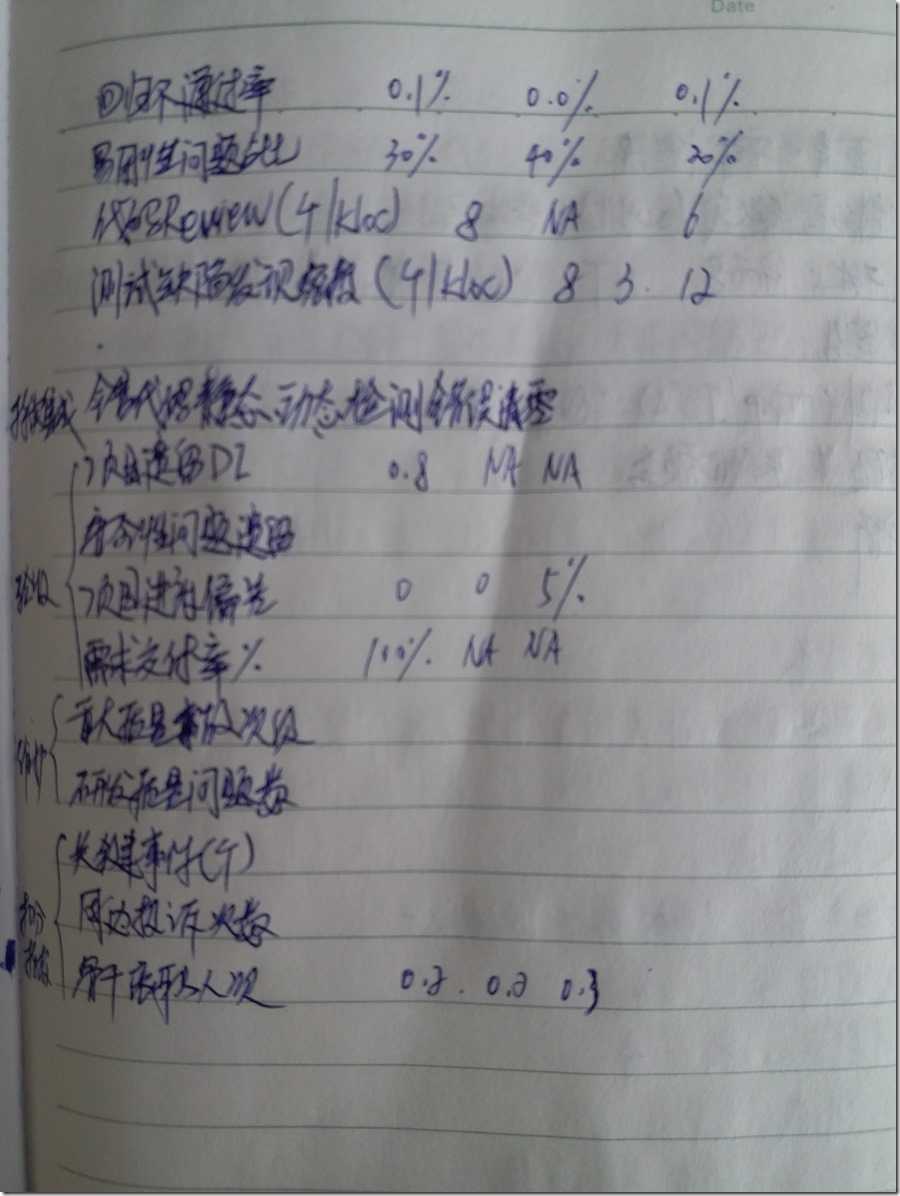 Date
回归不通过率 0.1% 0.0% 0.1%
易用性问题占比 30% 40% 20%
代码Review(个/kloc) 8 NA 6
测试缺陷发现密度(个/kloc) 8 3. 12
持续集成 全量代码静态、动态检测错误清零
项目遗留DI 0.8 NA NA
安全性问题遗留
验收 项目进度偏差 0 0 5%
需求交付率% 100% NA NA
重大质量事故次数
研发质量问题数
关键事件(个)
扣分 周边投诉次数
指标 骨干 人次 0.2. 0.2 0.3